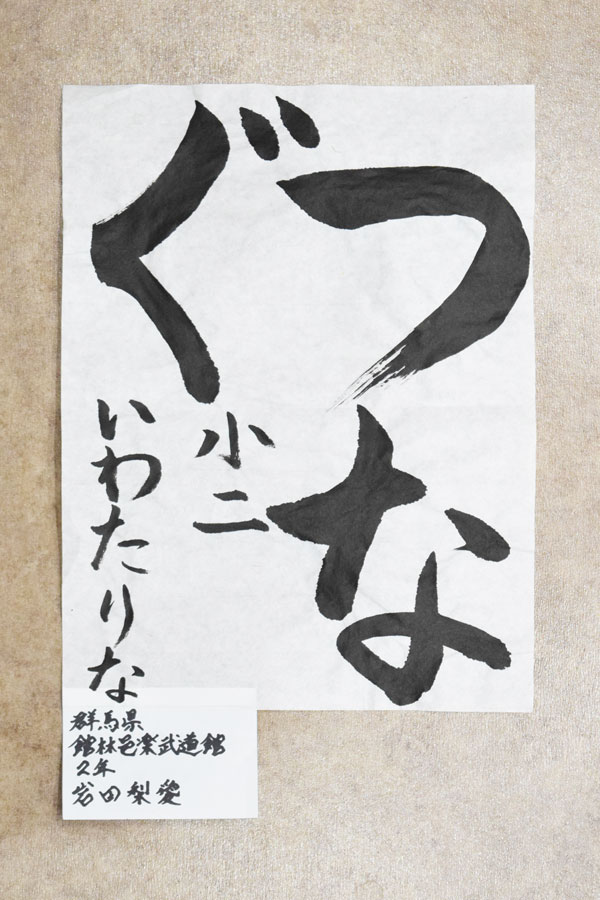 つな
ぐ
小二
いわたりな
群馬県
館林邑楽武道館
2年
岩田梨愛